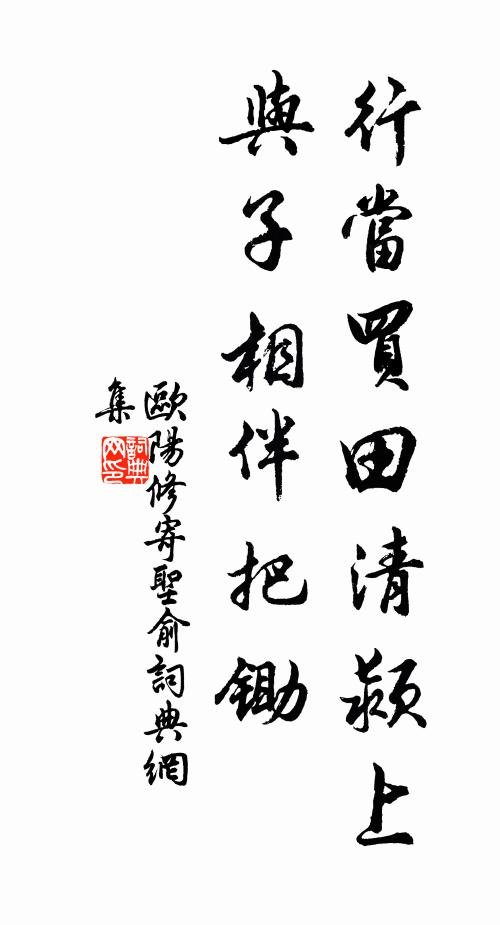 行當買田清潁上
與子相伴把鋤
歐陽修寄聖俞詞典網
集
詞典网印